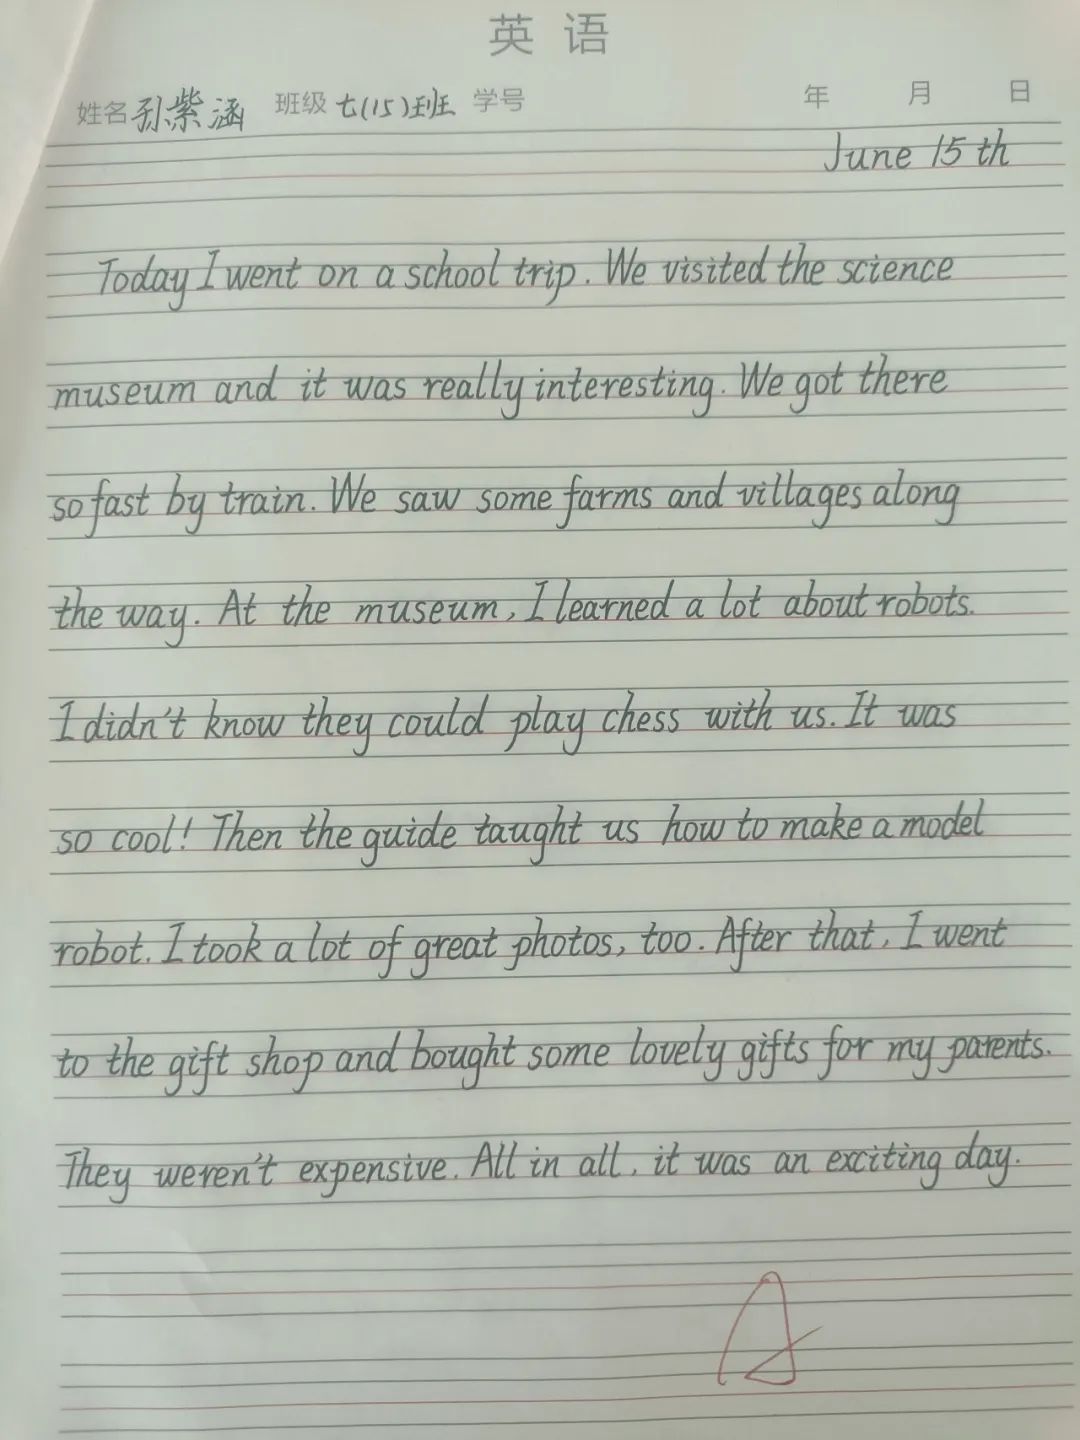 英语
姓名 孙紫涵 班级 七(15)班 学号 年 月 日
June 15th
Today I went on a school trip. We visited the science
museum and it was really interesting. We got there
so fast by train. We saw some farms and villages along
the way. At the museum, I learned a lot about robots.
I didn't know they could play chess with us. It was
so cool! Then the guide taught us how to make a model
robot. I took a lot of great photos, too. After that, I went
to the gift shop and bought some lovely gifts for my parents.
They weren't expensive. All in all, it was an exciting day.
A